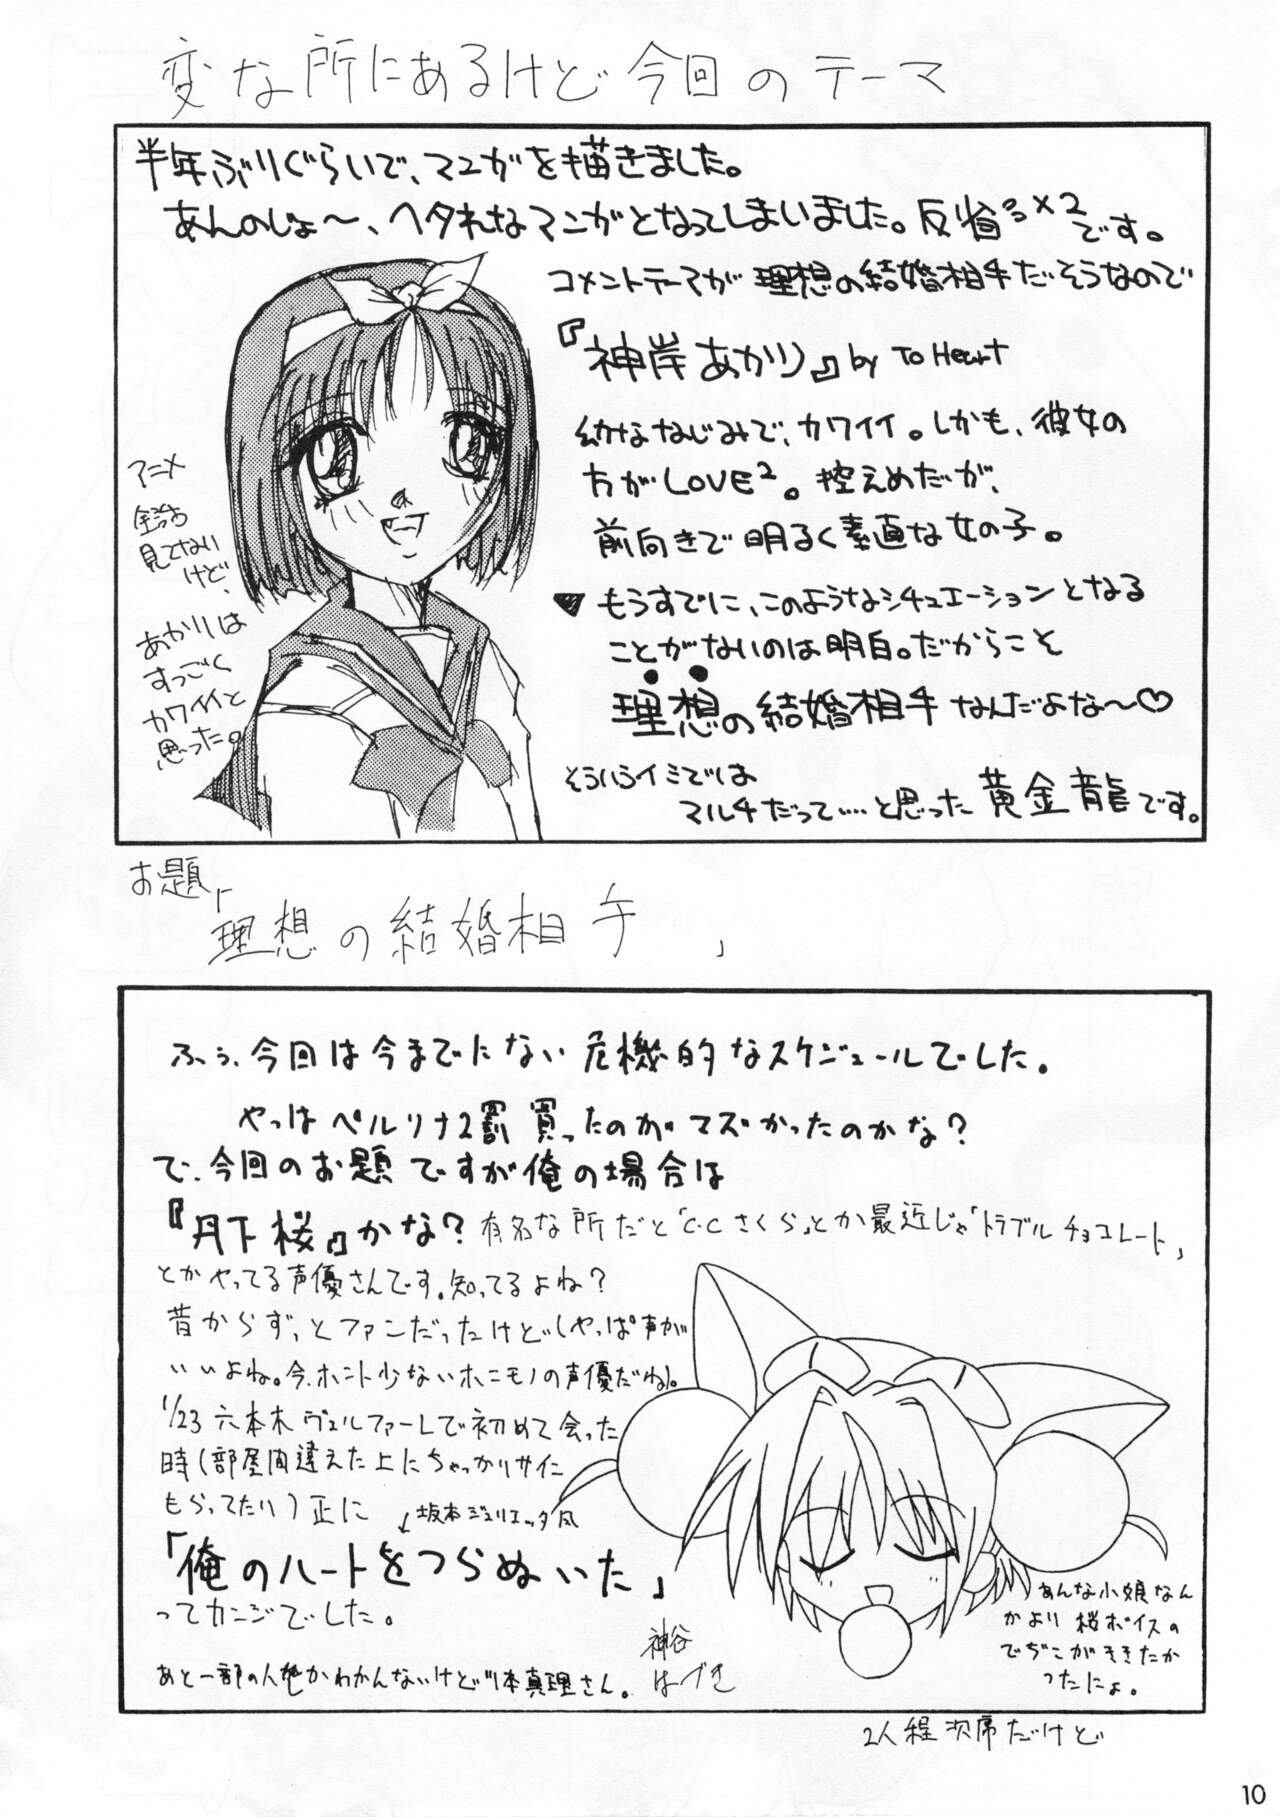 変な所にあるけど今回のテーマ
半年ぶりぐらいで、マンガを描きました。
あんのじょ〜、ヘタれなマンガとなってしまいました。反省×2です。
コメントテーマが理想の結婚相手だそうなので
『神岸あかり』by To Heart
幼ななじみで、カワイイ。しかも、彼女の
方がLOVE²。控えめだが、
前向きで明るく素直な女の子。
もうすでに、このようなシチュエーションとなる
ことがないのは明白。だからこそ
理想の結婚相手なんだよな〜♡
そういうイミでは
マルチだって……と思った黄金龍です。
アニメ
見てない
けど、
あかりは
すっごく
カワイイと
思った。
お題
「理想の結婚相手」
ふぅ、今回は今までにない危機的なスケジュールでした。
やっぱペルソナ2罰買ったのがマズかったのかな?
で、今回のお題ですが俺の場合は
『丹下桜』かな?有名な所だと「C.Cさくら」とか最近じゃ「トラブルチョコレート」
とかやってる声優さんです。知ってるよね?
昔からずっとファンだったけど(やっぱ声が
いいよね。今、ホント少ないホンモノの声優だね)。
1/23 六本木ヴェルファーレで初めて会った
時(部屋間違えた上にちゃっかりサイン
もらってたり)正に
坂本ジュリエッタ風
「俺のハートをつらぬいた」
ってカンジでした。
神谷
はづき
あと一部の人しかわかんないけど真理さん。
あんな小娘なん
かより桜ボイスの
でぢこがききたか
ったにょ。
2人程次席だけど
10